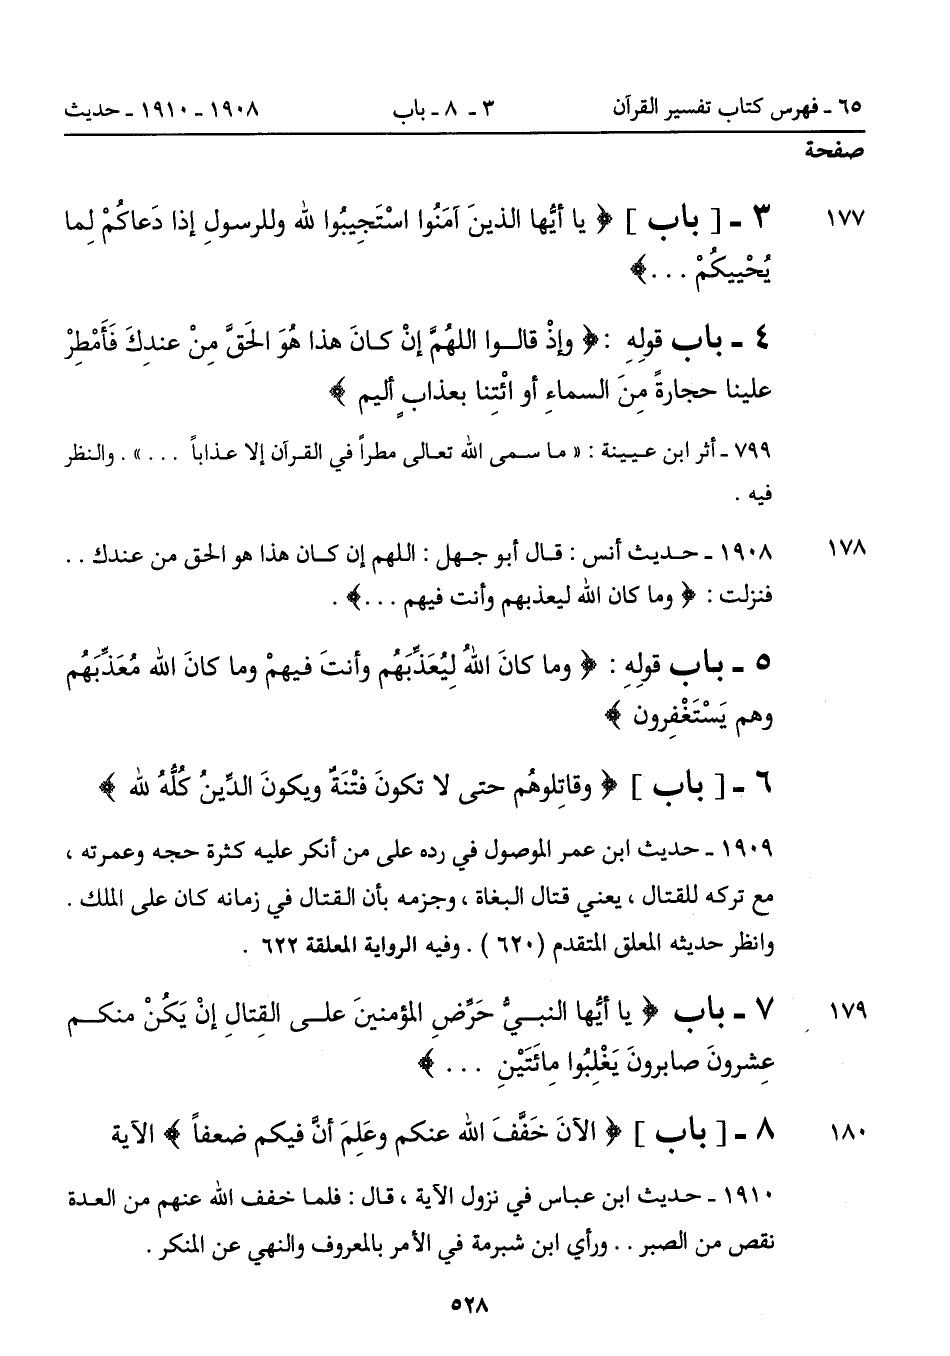 ٦٥ ـ فهرس كتاب تفسير القرآن ٣ ـ ٨ ـ باب ١٩٠٨ ـ ١٩١٠ ـ حديث
صفحة
١٧٧ ٣ ـ [ باب ] ﴿ يا أيُّها الذينَ آمَنُوا اسْتَجِيبُوا لله وللرسولِ إذا دَعاكُمْ لِما
يُحْييكُمْ ...﴾
٤ ـ باب قولِهِ : ﴿ وإذْ قالوا اللهُمَّ إنْ كانَ هذا هُوَ الحَقَّ مِنْ عندِكَ فَأَمْطِرْ
علينا حجارةً مِنَ السماءِ أو ائْتِنا بعذابٍ أليم ﴾
٧٩٩ ـ أثر ابن عيينة : « ما سمى الله تعالى مطراً في القرآن إلا عذاباً ... » . والنظر
فيه .
١٧٨ ١٩٠٨ ـ حديث أنس : قال أبو جهل : اللهم إن كان هذا هو الحق من عندك . .
فنزلت : ﴿ وما كان الله ليعذبهم وأنت فيهم ...﴾ .
٥ ـ باب قولِهِ : ﴿ وما كانَ اللهُ لِيُعَذِّبَهُم وأنتَ فيهمْ وما كانَ الله مُعَذِّبَهُم
وهم يَسْتَغْفِرون ﴾
٦ ـ [ باب ] ﴿ وقاتِلوهُم حتى لا تكونَ فتْنَةٌ ويكونَ الدِّينُ كُلُّهُ لله ﴾
١٩٠٩ ـ حديث ابن عمر الموصول في رده على من أنكر عليه كثرة حجه وعمرته ،
مع تركه للقتال ، يعني قتال البغاة ، وجزمه بأن القتال في زمانه كان على الملك .
وانظر حديثه المعلق المتقدم (٦٢٠) . وفيه الرواية المعلقة ٦٢٢ .
١٧٩ ٧ ـ باب ﴿ يا أيُّها النبيُّ حَرِّضِ المؤمنينَ على القِتالِ إنْ يَكُنْ منكم
عِشرونَ صابرونَ يَغْلِبُوا مِائَتَيْنِ ... ﴾
١٨٠ ٨ ـ [ باب ] ﴿ الآنَ خَفَّفَ الله عنكم وعَلِمَ أنَّ فيكم ضعفاً ﴾ الآية
١٩١٠ ـ حديث ابن عباس في نزول الآية ، قال : فلما خفف الله عنهم من العدة
نقص من الصبر . . ورأي ابن شبرمة في الأمر بالمعروف والنهي عن المنكر .
٥٢٨